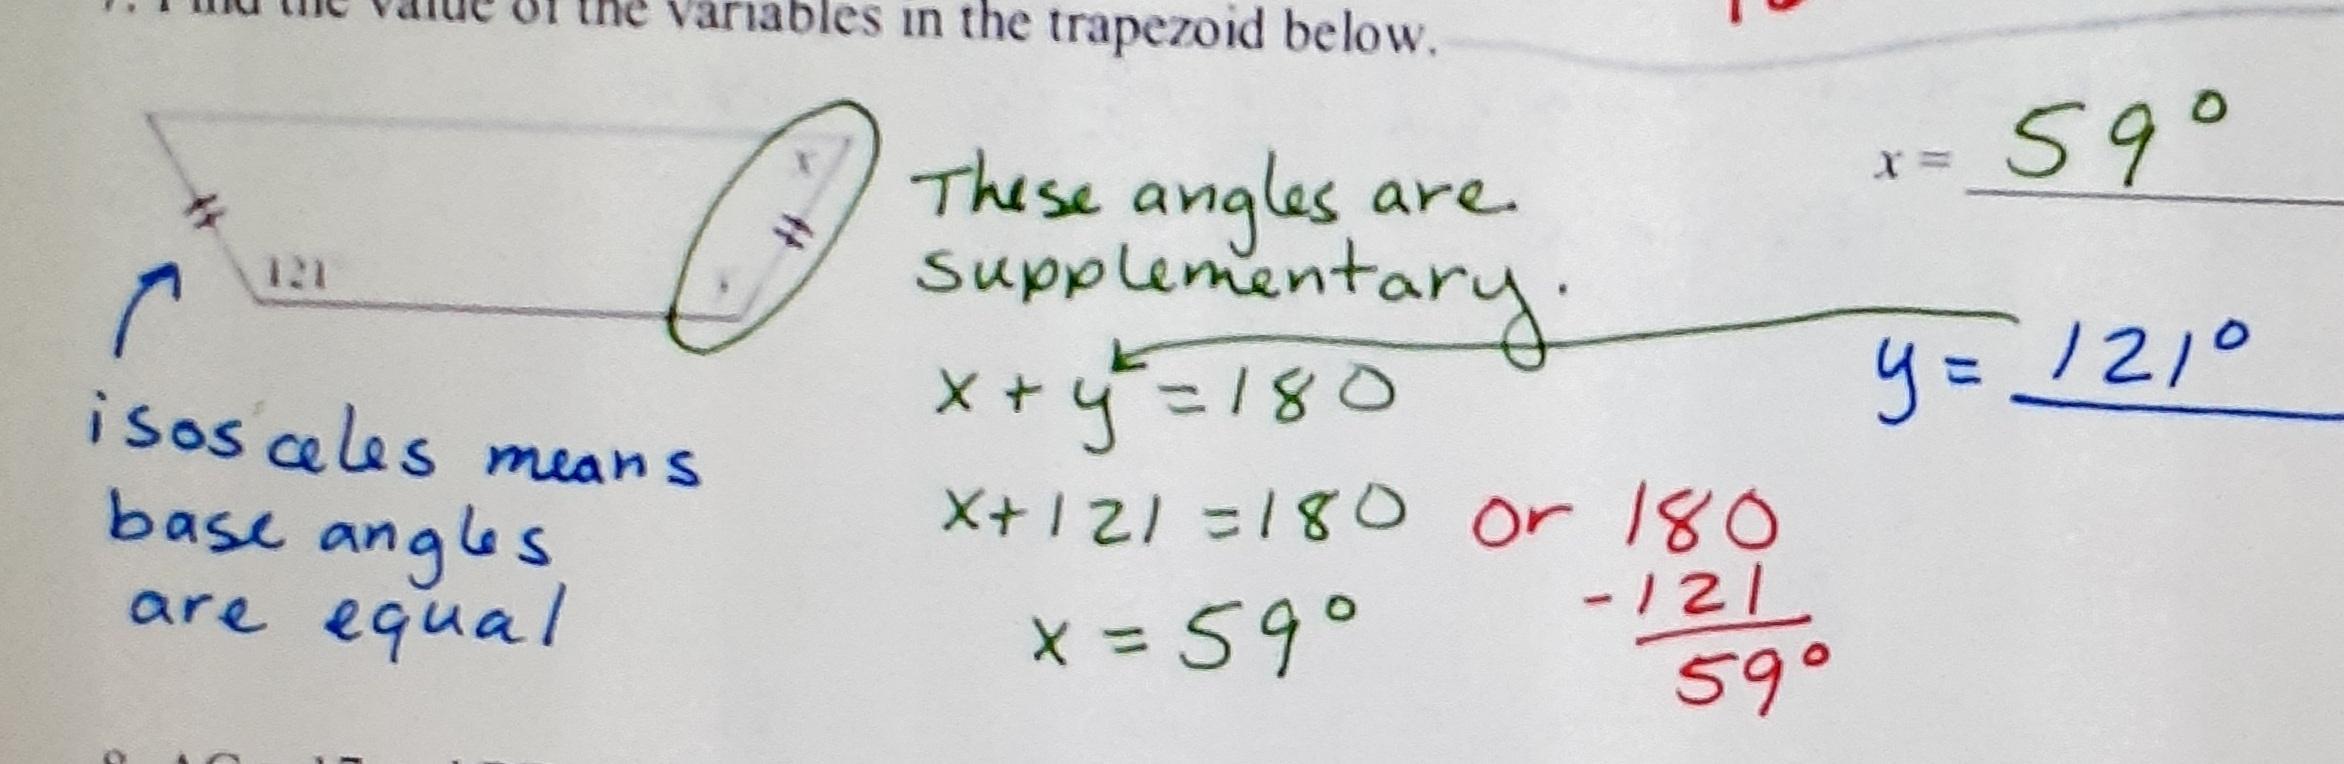 the value of the variables in the trapezoid below.
x
121
These angles are
supplementary.
x = 59°
y = 121°
isosceles means
base angles
are equal
x + y = 180
x + 121 = 180 or 180
- 121
x = 59°
59°